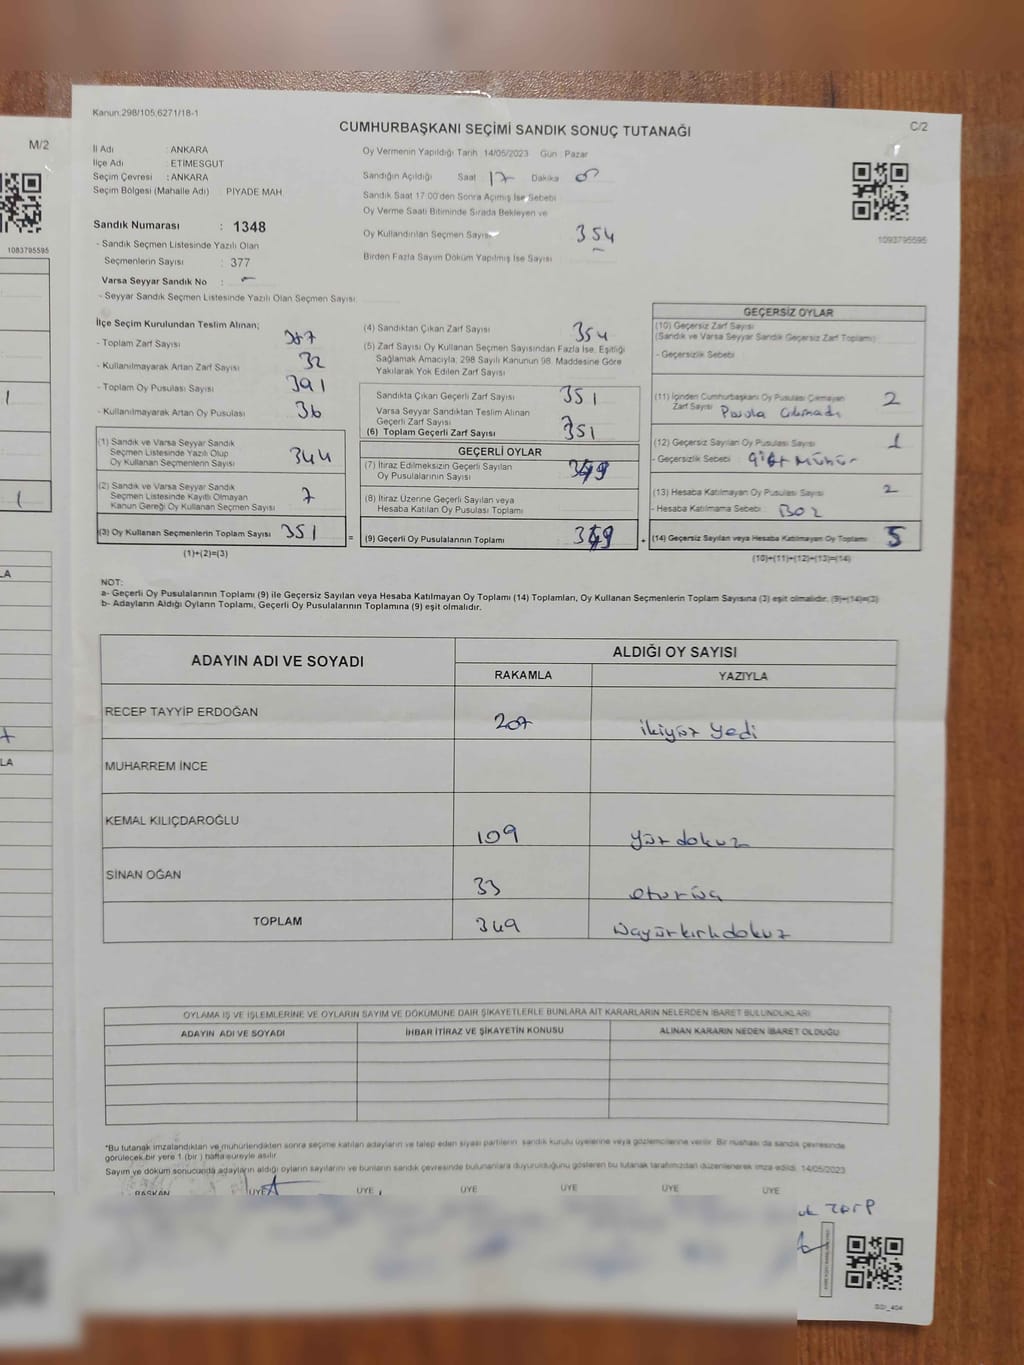 M/2
1083795595
1
1
LA
LA
Kanun,298/105,6271/18-1
C/2
CUMHURBAŞKANI SEÇİMİ SANDIK SONUÇ TUTANAĞI
İl Adı : ANKARA
İlçe Adı : ETİMESGUT
Seçim Çevresi : ANKARA
Seçim Bölgesi (Mahalle Adı) : PİYADE MAH
Sandık Numarası : 1348
- Sandık Seçmen Listesinde Yazılı Olan
Seçmenlerin Sayısı : 377
Varsa Seyyar Sandık No : -
- Seyyar Sandık Seçmen Listesinde Yazılı Olan Seçmen Sayısı
Oy Vermenin Yapıldığı Tarih 14/05/2023 Gün Pazar
Sandığın Açıldığı Saat 17 Dakika
Sandık Saat 17:00'den Sonra Açımış İse Sebebi
Oy Verme Saati Bitiminde Sırada Bekleyen ve
Oy Kullandırılan Seçmen Sayısı 354
Birden Fazla Sayım Döküm Yapılmış İse Sayısı
1093795595
İlçe Seçim Kurulundan Teslim Alınan;
- Toplam Zarf Sayısı 387
- Kullanılmayarak Artan Zarf Sayısı 32
- Toplam Oy Pusulası Sayısı 391
- Kullanılmayarak Artan Oy Pusulası 36
(1) Sandık ve Varsa Seyyar Sandık
Seçmen Listesinde Yazılı Olup
Oy Kullanan Seçmenlerin Sayısı 344
(2) Sandık ve Varsa Seyyar Sandık
Seçmen Listesinde Kayıtlı Olmayan
Kanun Gereği Oy Kullanan Seçmen Sayısı 7
(3) Oy Kullanan Seçmenlerin Toplam Sayısı 351 =
(1)+(2)=(3)
(4) Sandıktan Çıkan Zarf Sayısı 354
(5) Zarf Sayısı Oy Kullanan Seçmen Sayısından Fazla İse, Eşitliği
Sağlamak Amacıyla, 298 Sayılı Kanunun 98. Maddesine Göre
Yakılarak Yok Edilen Zarf Sayısı
Sandıkta Çıkan Geçerli Zarf Sayısı 351
Varsa Seyyar Sandıktan Teslim Alınan
Geçerli Zarf Sayısı
(6) Toplam Geçerli Zarf Sayısı 351
GEÇERLİ OYLAR
(7) İtiraz Edilmeksizin Geçerli Sayılan
Oy Pusulalarının Sayısı 349
(8) İtiraz Üzerine Geçerli Sayılan veya
Hesaba Katılan Oy Pusulası Toplamı
(9) Geçerli Oy Pusulalarının Toplamı 349 +
GEÇERSİZ OYLAR
(10) Geçersiz Zarf Sayısı
(Sandık ve Varsa Seyyar Sandık Geçersiz Zarf Toplamı)
- Geçersizlik Sebebi
(11) İçinden Cumhurbaşkanı Oy Pusulası Çıkmayan
Zarf Sayısı Pusula Çıkmadı 2
(12) Geçersiz Sayılan Oy Pusulası Sayısı 1
- Geçersizlik Sebebi : Çift Mühür
(13) Hesaba Katılmayan Oy Pusulası Sayısı 2
- Hesaba Katılmama Sebebi : Boz
(14) Geçersiz Sayılan veya Hesaba Katılmayan Oy Toplamı 5
(10)+(11)+(12)+(13)=(14)
NOT:
a- Geçerli Oy Pusulalarının Toplamı (9) ile Geçersiz Sayılan veya Hesaba Katılmayan Oy Toplamı (14) Toplamları, Oy Kullanan Seçmenlerin Toplam Sayısına (3) eşit olmalıdır. (9)+(14)=(3)
b- Adayların Aldığı Oyların Toplamı, Geçerli Oy Pusulalarının Toplamına (9) eşit olmalıdır.
ADAYIN ADI VE SOYADI
ALDIĞI OY SAYISI
RAKAMLA YAZIYLA
RECEP TAYYİP ERDOĞAN 207 ikiyüz yedi
MUHARREM İNCE
KEMAL KILIÇDAROĞLU 109 yüz dokuz
SİNAN OĞAN 33 otuzüç
TOPLAM 349 üçyüzkırkdokuz
OYLAMA İŞ VE İŞLEMLERİNE VE OYLARIN SAYIM VE DÖKÜMÜNE DAİR ŞİKAYETLERLE BUNLARA AİT KARARLARIN NELERDEN İBARET BULUNDUKLARI
ADAYIN ADI VE SOYADI İHBAR İTİRAZ VE ŞİKAYETİN KONUSU ALINAN KARARIN NEDEN İBARET OLDUĞU
*Bu tutanak imzalandıktan ve mühürlendikten sonra seçime katılan adayların ve talep eden siyasi partilerin sandık kurulu üyelerine veya gözlemcilerine verilir. Bir nüshası da sandık çevresinde
görülecek bir yere 1 (bir ) hafta süreyle asılır.
Sayım ve döküm sonucunda adayların aldığı oyların sayılarını ve bunların sandık çevresinde bulunanlara duyurulduğunu gösteren bu tutanak tarafımızdan düzenlenerek imza edildi. 14/05/2023
BAŞKAN ÜYE ÜYE ÜYE ÜYE ÜYE ÜYE